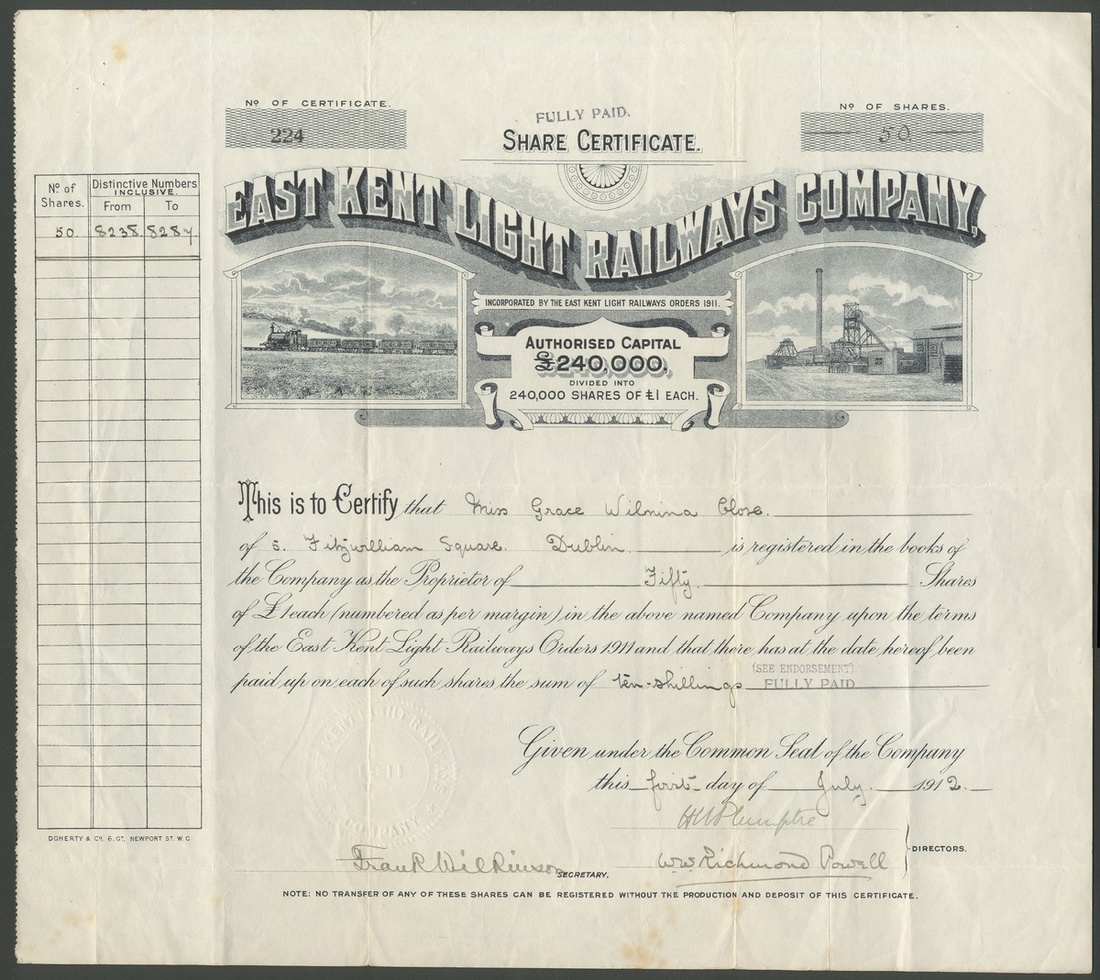 Nº OF CERTIFICATE.
224
FULLY PAID.
SHARE CERTIFICATE.
Nº OF SHARES.
50
EAST KENT LIGHT RAILWAYS COMPANY.
INCORPORATED BY THE EAST KENT LIGHT RAILWAYS ORDERS 1911.
AUTHORISED CAPITAL
£240,000,
DIVIDED INTO
240,000 SHARES OF £1 EACH.
Nº of Shares.
Distinctive Numbers
INCLUSIVE.
From To
50. 8238. 8287.
This is to Certify that Miss Grace Wilmina Close.
of 5. Fitzwilliam Square. Dublin. is registered in the books of
the Company as the Proprietor of Fifty. Shares
of £1 each (numbered as per margin) in the above named Company upon the terms
of the East Kent Light Railways Orders 1911 and that there has at the date hereof been
(SEE ENDORSEMENT)
paid up on each of such shares the sum of ten-shillings FULLY PAID
EAST KENT LIGHT RAILWAYS
1911
COMPANY
Given under the Common Seal of the Company
this first day of July. 1912.
H W Plumptre
W.W. Richmond Powell
DIRECTORS.
Frank Wilkinson
SECRETARY.
DOHERTY & Cº 6. Gᵗ. NEWPORT ST. W.C
NOTE: NO TRANSFER OF ANY OF THESE SHARES CAN BE REGISTERED WITHOUT THE PRODUCTION AND DEPOSIT OF THIS CERTIFICATE.